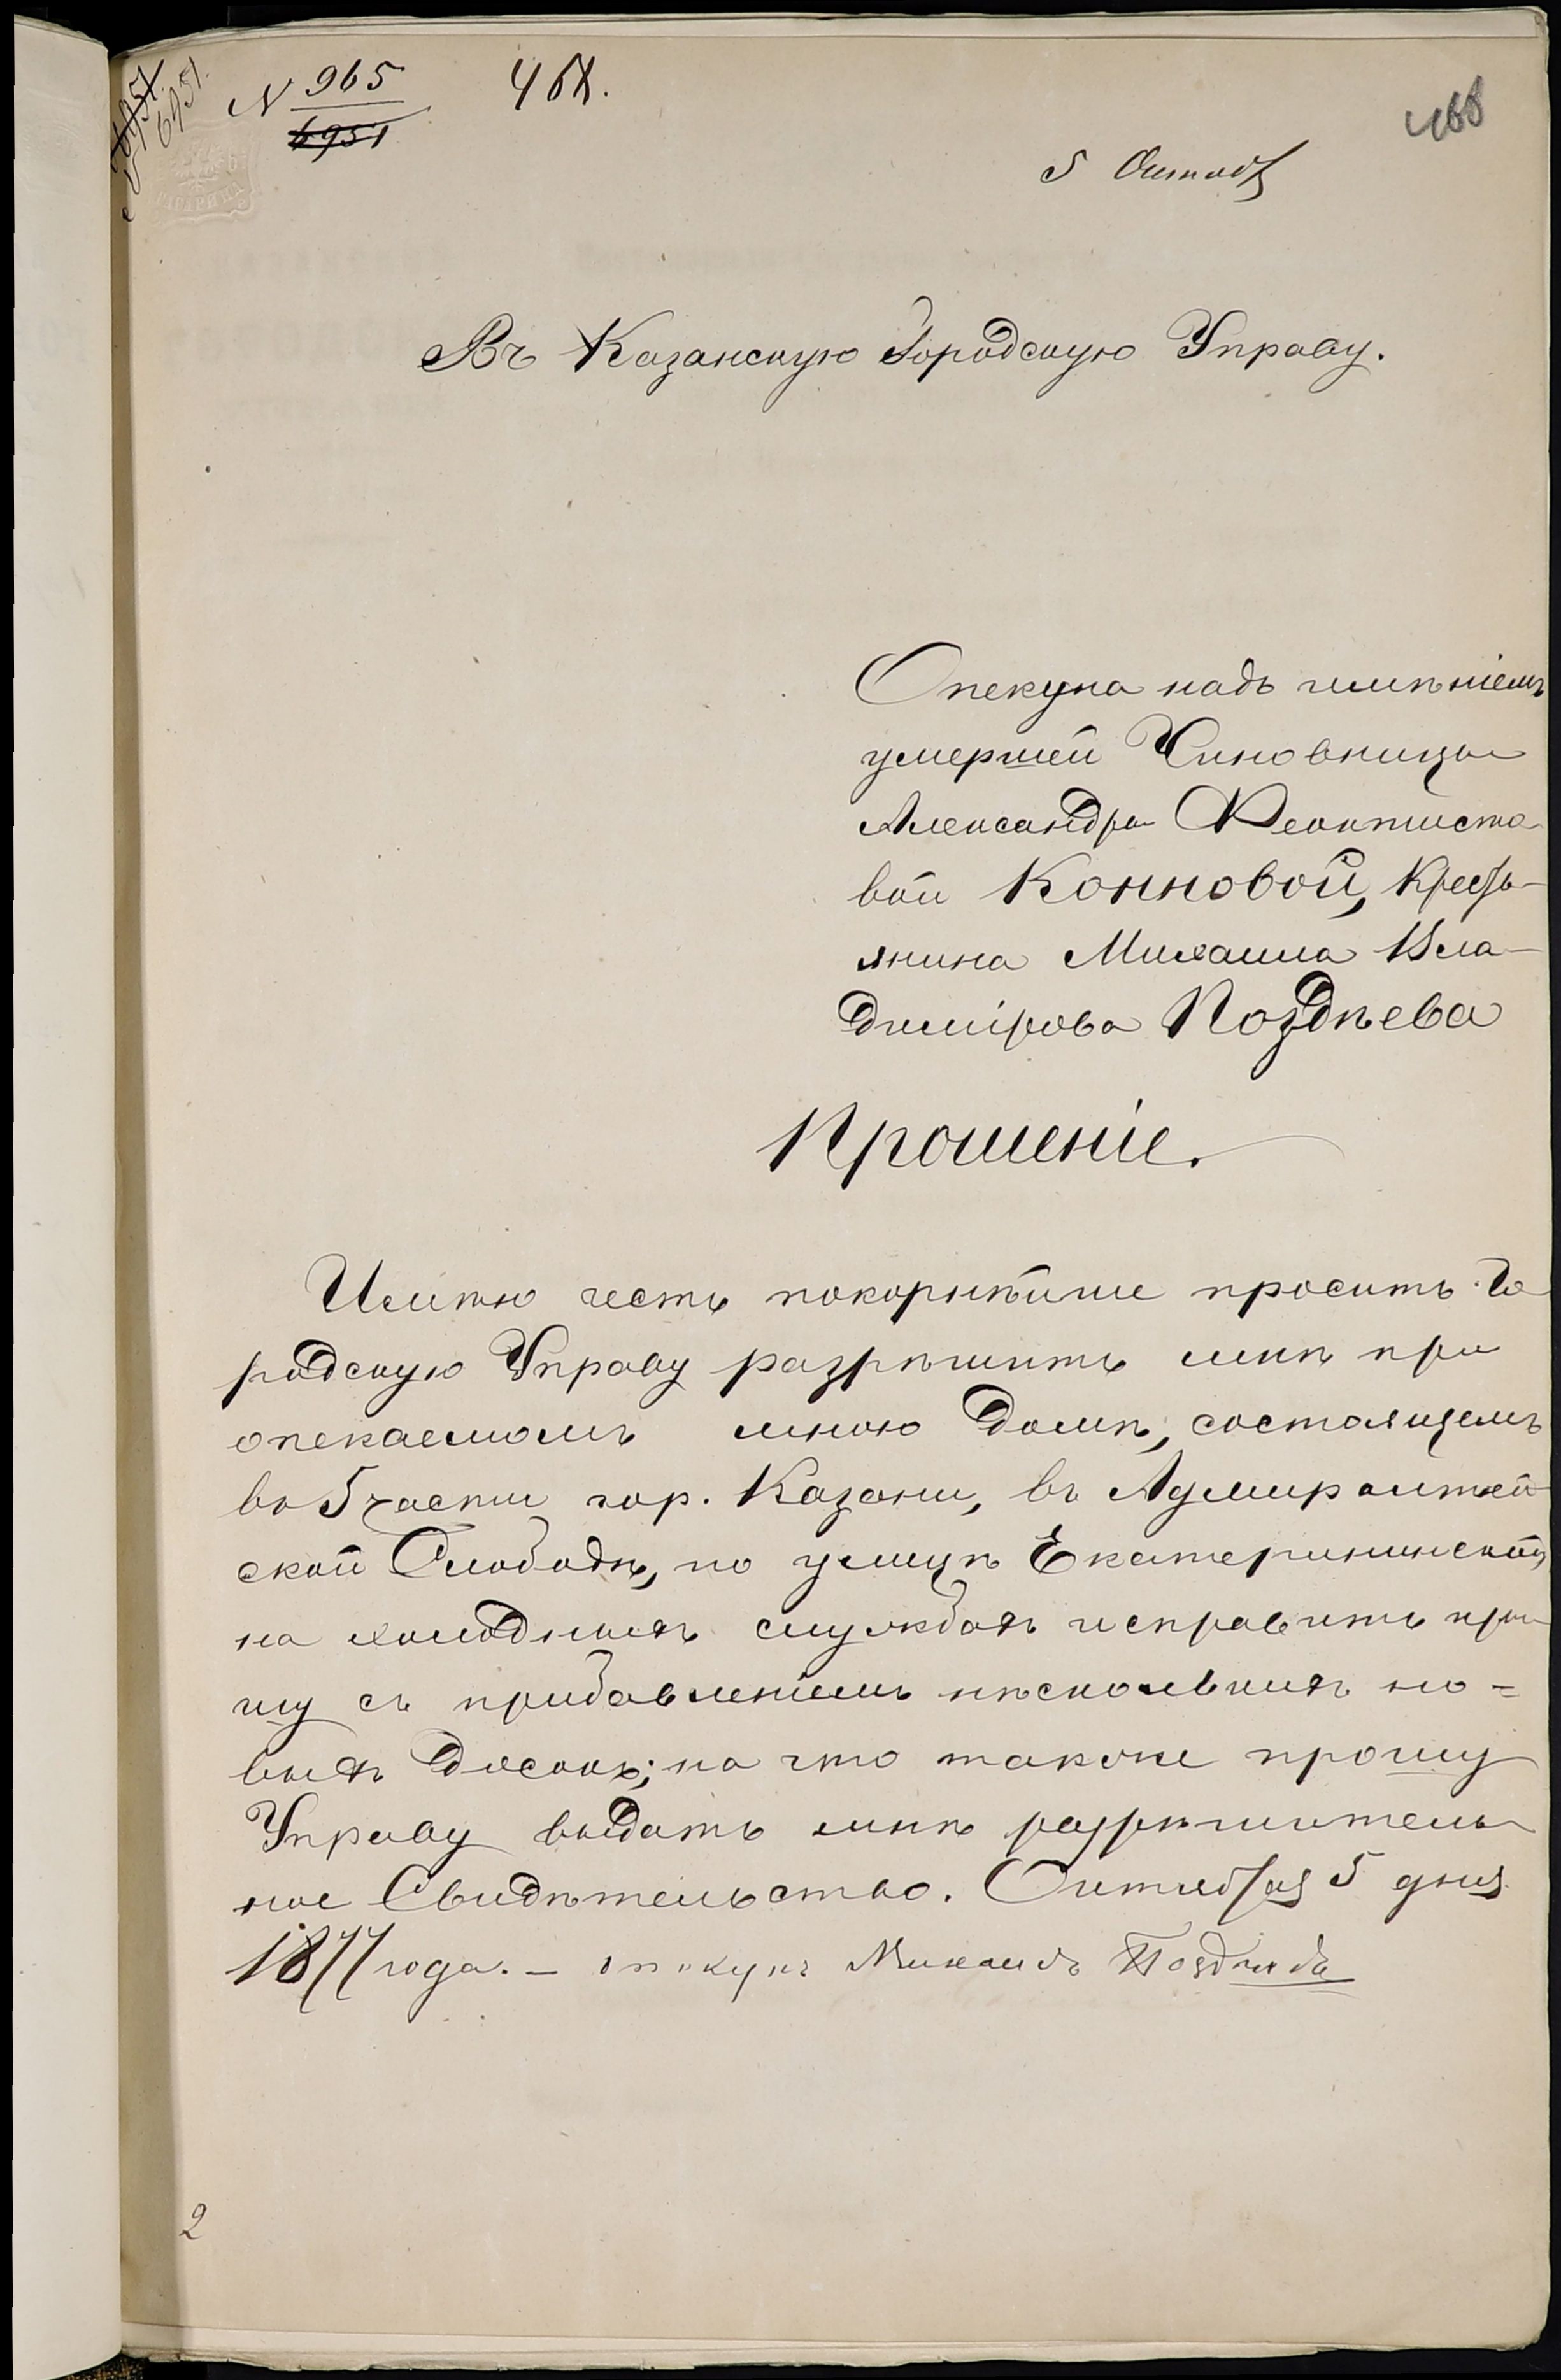 6951.
6951.
N 965
6951
468.
468
5 Октяб
Въ Казанскую Городскую Управу.
Опекуна надъ имѣніемъ
умершей Чиновницы
Александры Феоктисто
вой Конновой, Кресть-
янина Михаила Вла-
димірова Позднѣева
Прошеніе.
Имѣю честь покорнѣйше просить Го
родскую Управу разрѣшить мнѣ при
опекаемомъ мною домѣ, состоящемъ
въ 5 части гор. Казани, въ Адмиралтей
ской Слободѣ, по улицѣ Екатерининской,
на холодныхъ службахъ исправить кры
шу съ прибавленіемъ нѣсколькихъ но=
выхъ досокъ; на что также прошу
Управу выдать мнѣ разрѣшитель
ное Свидѣтельство. Октября 5 дня
1877 года. – опекунъ Михаилъ Позднѣевъ
2